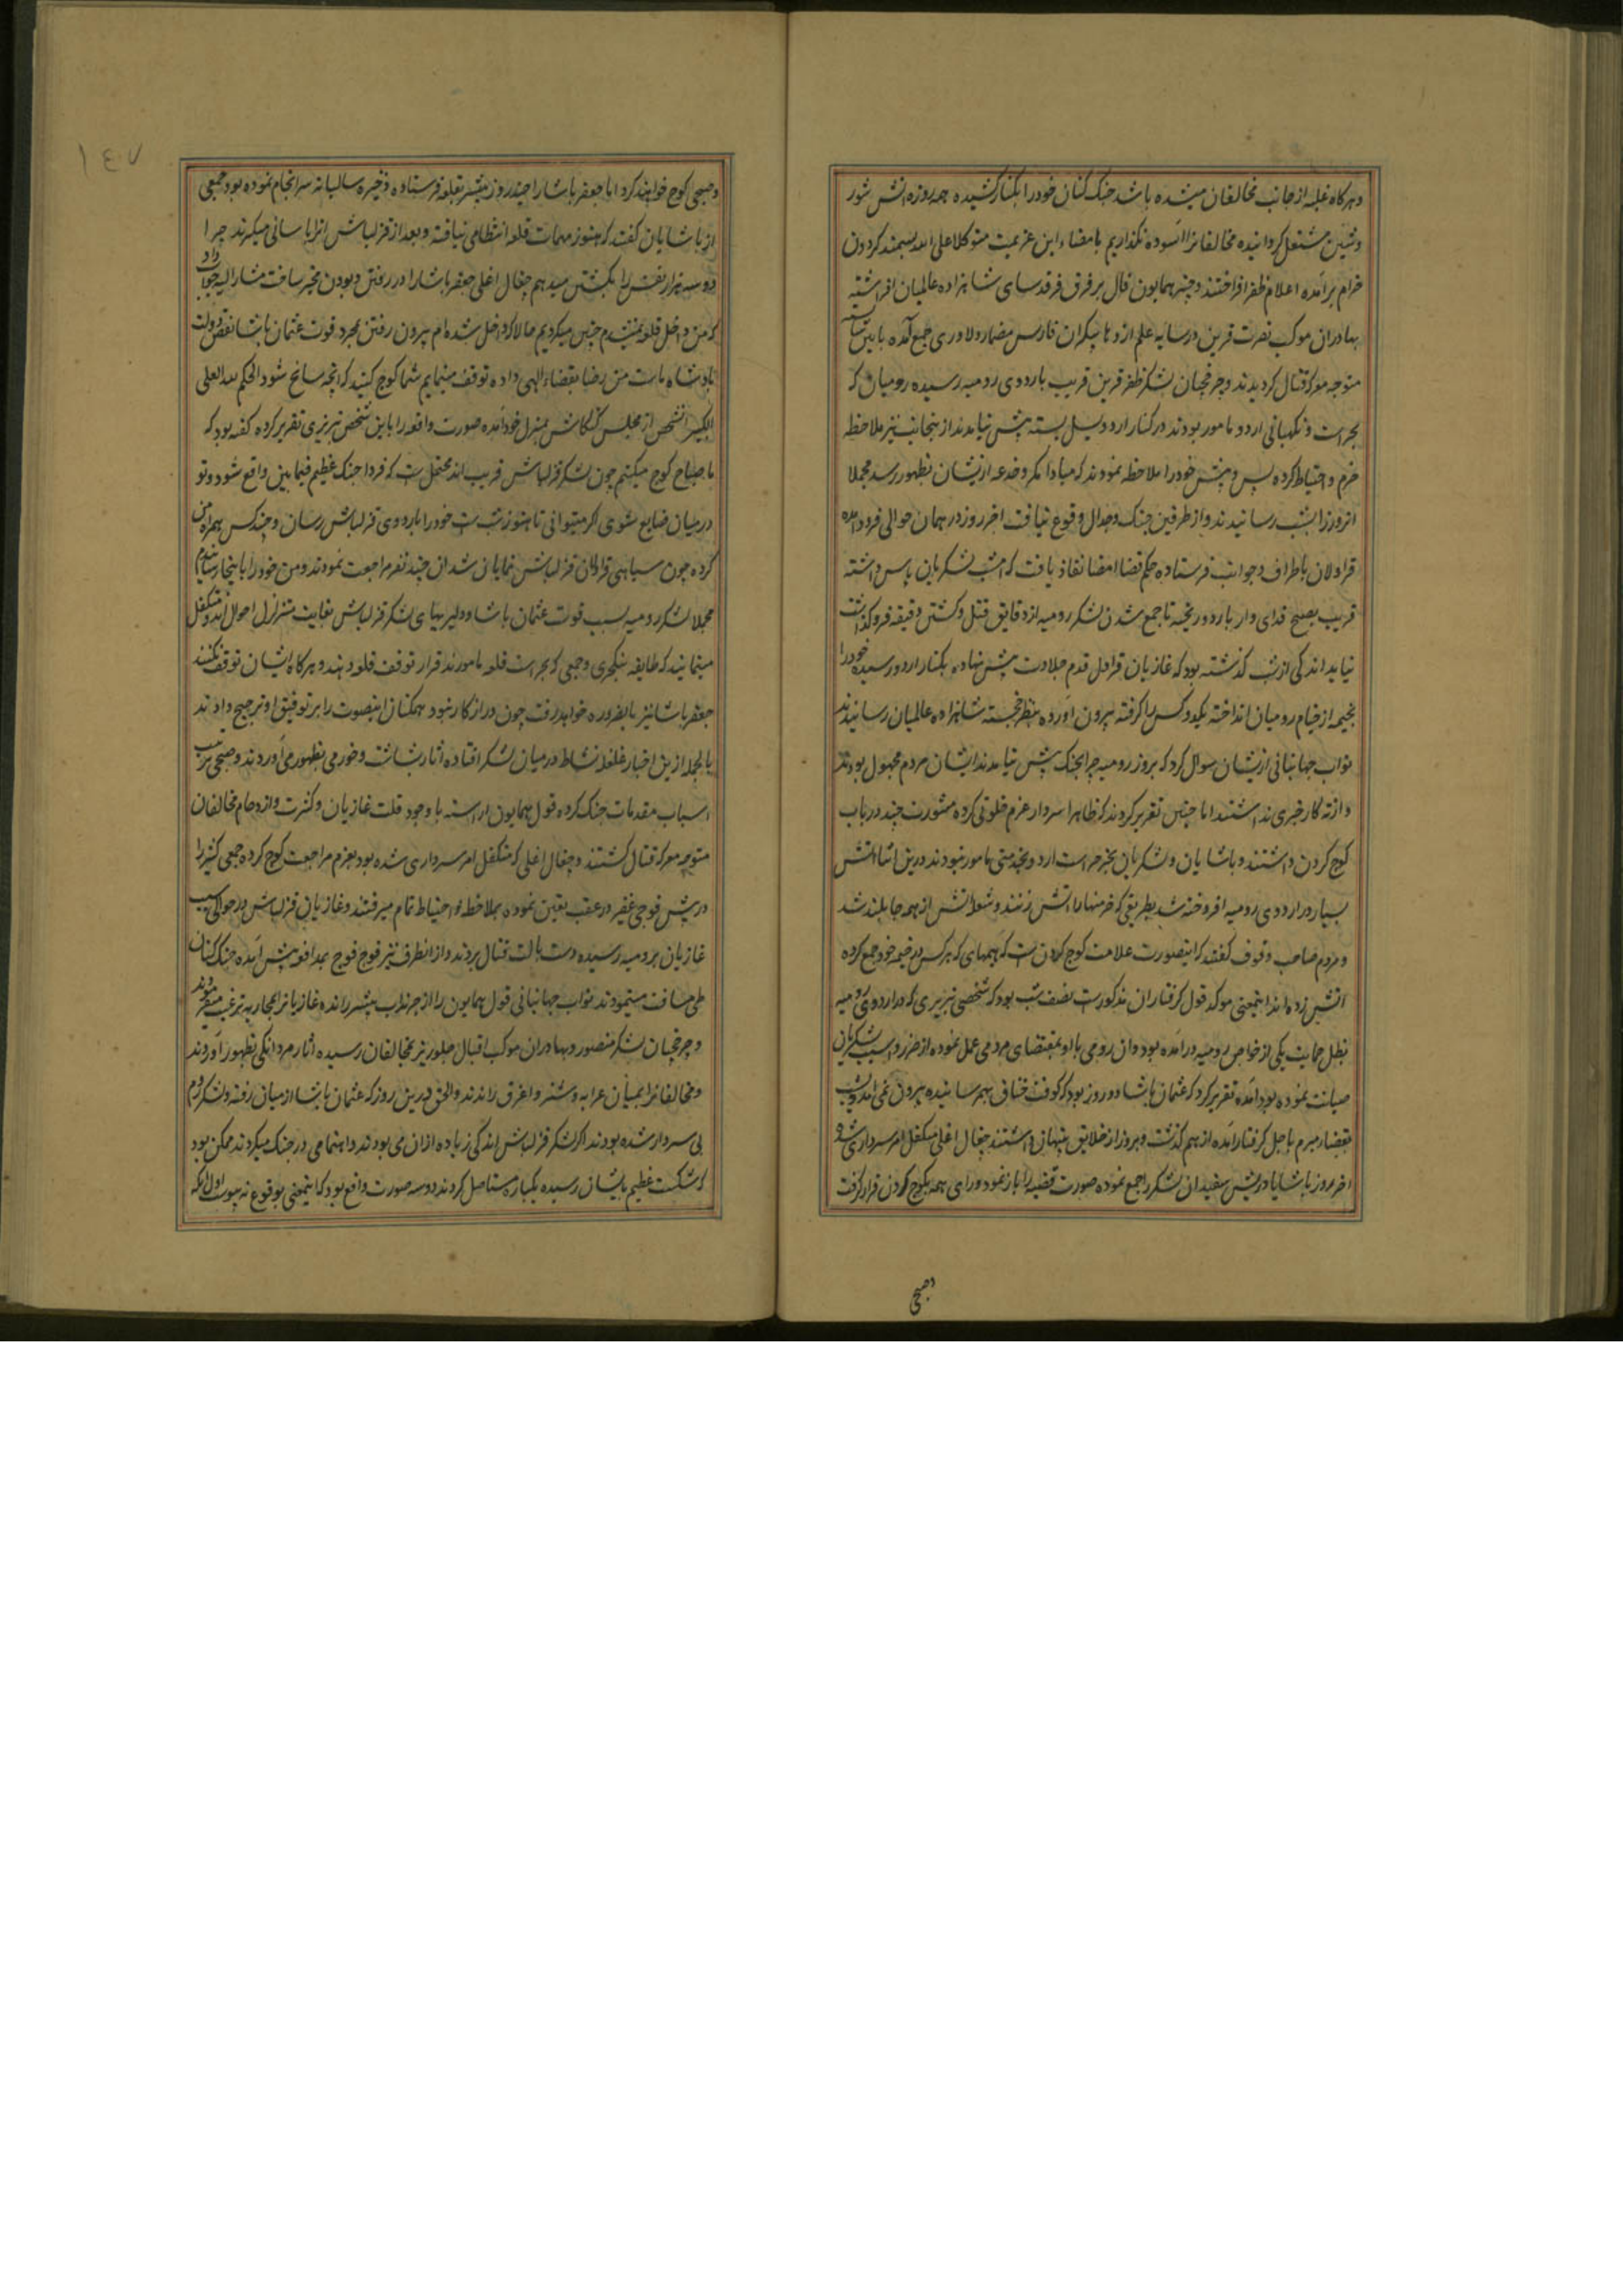 و هرکاه غلبه از جانب مخالفان میشده باشد جنک کنان خود را بکنار کشیده همه روزه آتش شور
و شین مشتعل کردانیده مخالفانرا آسوده نکذاریم بامضاء این عزیمت متوکلا علی الله بسمند کردون
خرام برآمده اعلام ظفر افراختند و چتر همایون فال بر فرق فرقدسای شاهزاده عالمیان افراشته
بهادران موکب نصرت قرین در سایه علم اژدها پیکر ان فارس مضمار دلاوری جمع آمده باین
متوجه معرکه قتال کردیدند و چرخچیان لشکر ظفر قرین قریب باردوی رومیه رسیده رومیان که
بحراست و نکهبانی اردو مامور بودند در کنار اردو یسل بسته پیش نیامدند از ینجانب نیز ملاحظه
حزم و احتیاط کرده پس و پیش خود را ملاحظه نمودند که مبادا مکر و خدعه از یشان بظهور رسد مجملا
آنروز را بشب رسانیدند و از طرفین جنک و جدال وقوع نیافت اخر روز در همان حوالی فرود آمده
قراولان باطراف و جوانب فرستاده حکم قضا امضا نفاذ یافت که امشب لشکریان پاس داشته
قریب بصبح فدای وار باردو ریخته تا جمع شدن لشکر رومیه از دقایق قتل و کشتن دقیقه فرو کذاشت
نیاید اندکی از شب کذشته بود که غازیان قراول قدم جلادت پیش نهاده بکنار اردو رسیده خود را
بخیمه از خیام رومیان انداخته یکدو کس را کرفته بیرون آورده بنظر خجسته شاهزاده عالمیان رسانیدند
نواب جهانبانی از یشان سوال کرد که بروز رومیه چرا بجنک پیش نیامدند ایشان مردم مجهول بودند
و از ته کار خبری نداشتند اما چنین تقریر کردند که ظاهرا سردار عزم خلوتی کرده مشورت چند در باب
کوچ کردن داشتند و پاشایان و لشکریان بجز حراست اردو بخدمتی مامور نبودند درین اثنا آتش
بسیار در اردوی رومیه افروخته شد بطریقی که خرمنها را آتش زنند و شعله آتش از همه جا بلند شد
و مردم صاحب وقوف کفتند که اینصورت علامت کوچ کردن است که هیمهای که هر کس در خیمه خود جمع کرده
آتش زده اند اینمعنی موکد قول کرفتاران مذکور است نصف شب بود که شخصی تبریزی که در اردوی رومیه
بظل حمایت یکی از خواص رومیه درآمده بود و ان رومی با او بمقتضای مردمی عمل نموده از ضرر و آسیب لشکریان
صیانت نموده بود آمده تقریر کرد که عثمان پاشا دو روز بود که کوفت خناق بهم رسانیده بیرون نمی آمد و شب
بقضاء مبرم باجل کرفتار آمده از هم کذشت و بروز از خلایق پنهان داشتند چغال اغلی متکفل امر سرداری شد و
اخر روز پاشایان و ریش سفیدان لشکر را جمع نموده صورت قضیه را باز نمود و رای همه بکوچ کردن قرار کرفت
و صبحی
و صبحی کوچ خواهند کرد اما جعفر پاشا را چند روز پیشتر بقلعه فرستاده ذخیره سالیانه سرانجام نموده بود جمعی
از پاشایان کفتند که هنوز مهمات قلعه انتظامی نیافته و بعد از قزلباش انرا باسانی میکیرند چرا
دو سه هزار نفس را بکشتن میدهیم چغال اغلی جعفر پاشا را در رفتن و بودن مخیر ساخت مشارالیه جواب داد
که من داخل قلعه نمیشدم چنین میکردیم حالا که داخل شده ام بیرون رفتن بمجرد فوت عثمان پاشا نقص دولت
پادشاه ماست من رضا بقضاء الهی داده توقف مینمایم شما کوچ کنید که انچه سانح شود الحکم لله العلی
الکبیر آنشخص از مجلس کنکاش بمنزل خود آمده صورت واقعه را باین شخص تبریزی تقریر کرده کفته بود که
ما صباح کوچ میکنیم چون لشکر قزلباش قریب اند محتمل است که فردا جنک عظیم فیمابین واقع شود و تو
در میان ضایع شوی اکر میتوانی تا هنوز شب است خود را باردوی قزلباش رسان و چند کس همراه من
کرده چون سیاهی قراولان قزلباش نمایان شد ان چند نفر مراجعت نمودند و من خود را باینجا رسانیدم
مجملا لشکر رومیه بسبب فوت عثمان پاشا و دلیریهای لشکر قزلباش بغایت متزلزل احوال اند و متکفل
مینمایند که طایفه ینکچری و جمعی که بحراست قلعه مامورند قرار توقف قلعه دهند و هرکاه ایشان توقف نکنند
جعفر پاشا نیز بالضروره خواهد رفت چون دور از کار نبود همکنان اینصورت را بر توفیق او ترجیح دادند
بالجمله از ین اخبار غلغله نشاط در میان لشکر افتاده آثار بشاشت و خرمی بظهور می آوردند و صبحی ترتیب
اسباب مقدمات جنک کرده قول همایون اراسته با وجود قلت غازیان و کثرت و ازدحام مخالفان
متوجه معرکه قتال کشتند و چغال اغلی که متکفل امر سرداری شده بود بعزم مراجعت کوچ کرده جمعی کثیر را
در پیش فوجی غفیر در عقب تعین نموده بملاحظه و احتیاط تمام میرفتند و غازیان قزلباش در حوالی
غازیان برومیه رسیده دست بالت قتال بردند و از انطرف نیز فوج فوج بمدافعه پیش آمده جنک کنان
طی مسافت مینمودند نواب جهانبانی قول همایون را از چرنداب پیشتر رانده غازیانرا بمحاربه ترغیب میفرمودند
و چرخچیان لشکر منصور و بهادران موکب اقبال جلوریز بمخالفان رسیده آثار مردانکی بظهور آوردند
و مخالفانرا بمیان عرابه و شتر و اغرق راندند والحق درین روز که عثمان پاشا از میان رفته و لشکر روم
بی سردار شده بودند اکر لشکر قزلباش اندکی زیاده از ان می بودند و اهتمامی در جنک میکردند ممکن بود
که شکست عظیم بایشان رسیده یکباره مستاصل کردند دو سه صورت واقع بود که اینمعنی بوقوع نه پیوست اول آنکه
١٤٧